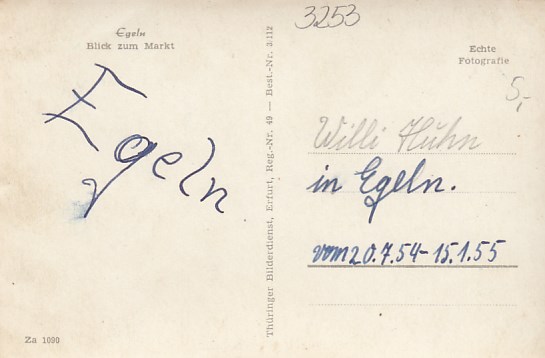 3253
Egeln
Blick zum Markt
Echte
Fotografie
5,-
Egeln
Thüringer Bilderdienst, Erfurt, Reg.-Nr. 49 — Best.-Nr. 3/112
Willi Huhn
in Egeln.
vom 20.7.54-15.1.55
Za 1090